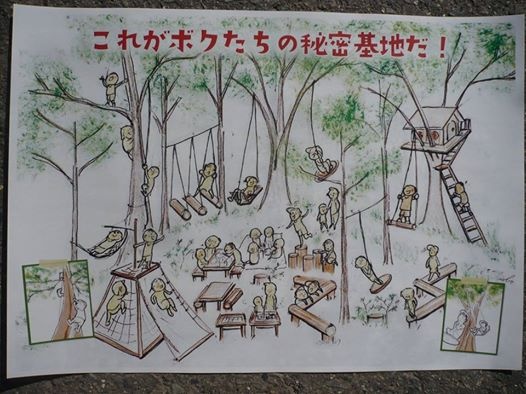 これがボクたちの秘密基地だ！